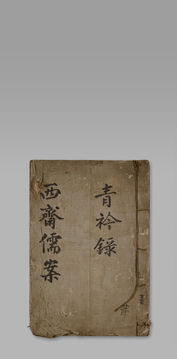 青衿錄
西齋儒案